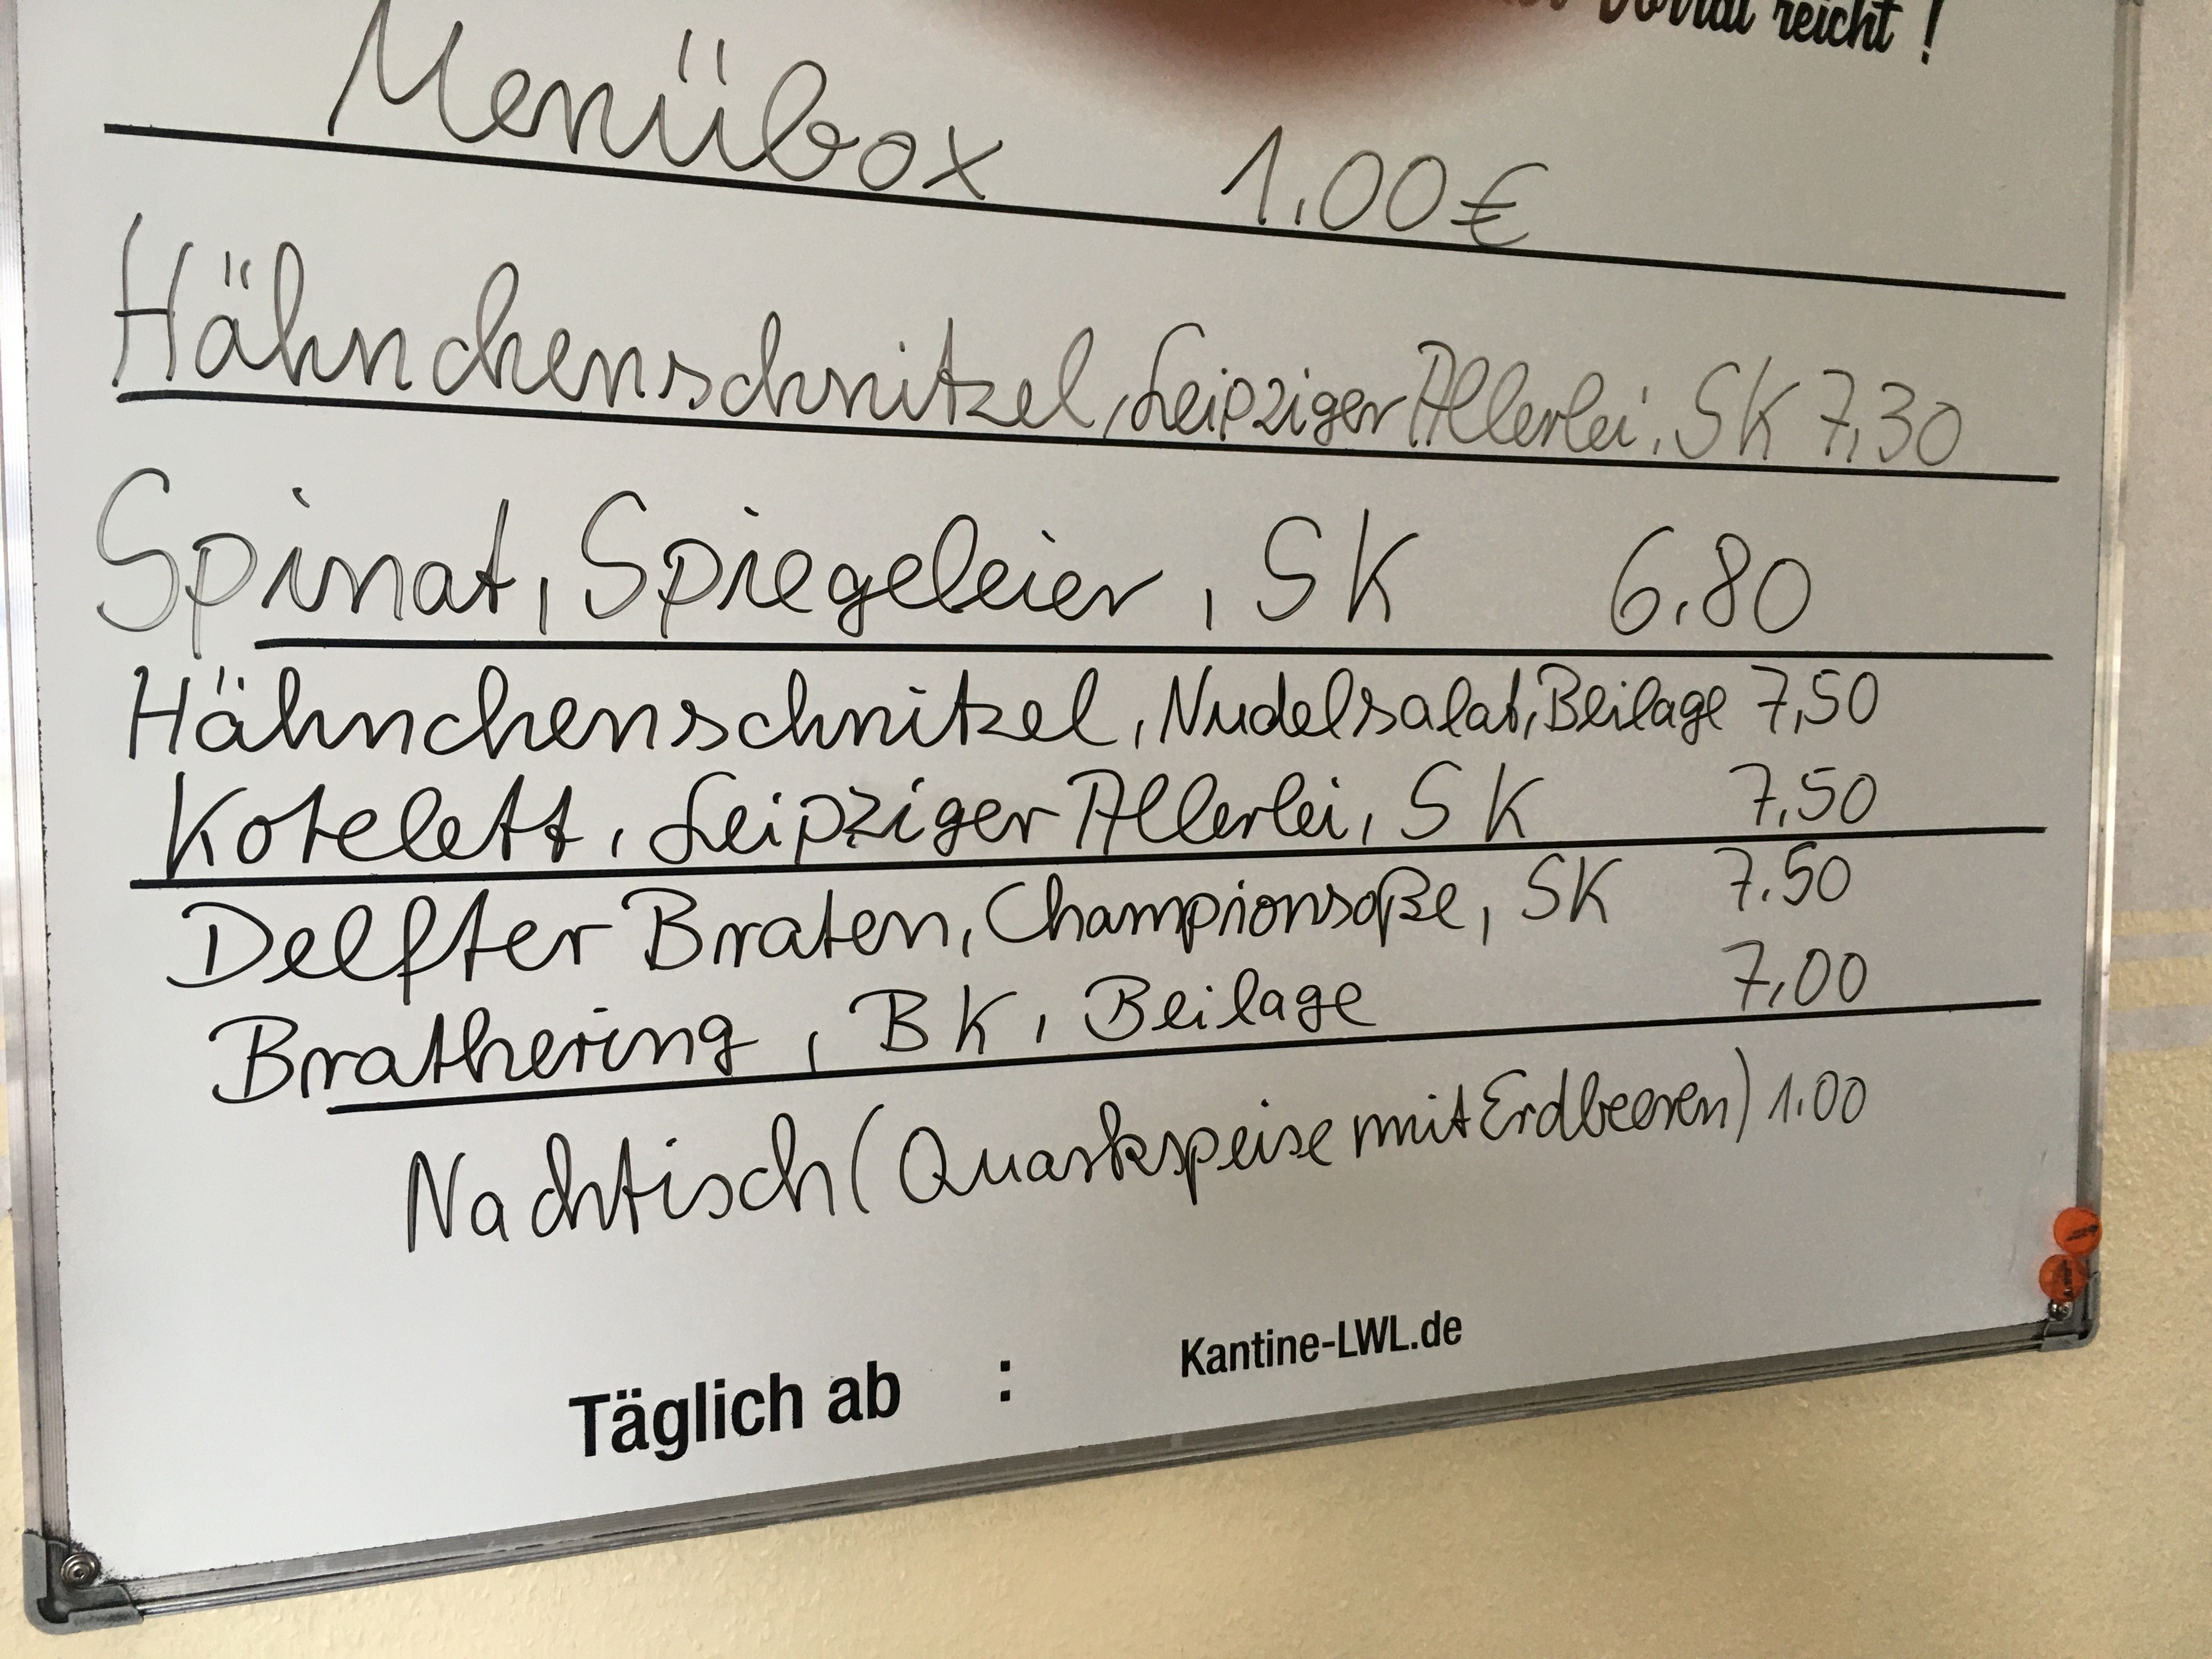 Vorrat reicht !
Menübox 1.00 €
Hähnchenschnitzel, Leipziger Allerlei, SK 7,30
Spinat, Spiegeleier, SK 6,80
Hähnchenschnitzel, Nudelsalat, Beilage 7,50
Kotelett, Leipziger Allerlei, SK 7,50
Delfter Braten, Championsoße, SK 7.50
Brathering, BK, Beilage 7,00
Nachtisch (Quarkspeise mit Erdbeeren) 1.00
Täglich ab :
Kantine-LWL.de